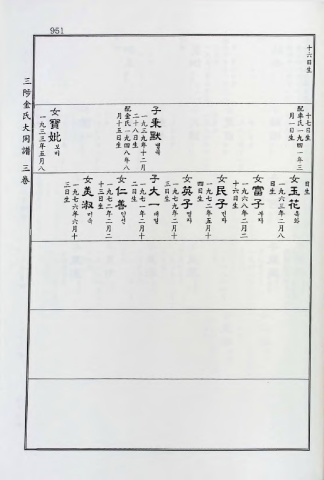 951
十六日生
十七日生
配車氏一九四一年三
月一日生
子秉默 병묵
一九三九年十二月
二十八日生
配金氏一九四八年八
月十五日生
女寶妣 보비
一九三三年五月八
日生
女玉花 옥화
一九六三年二月八
日生
女富子 부자
一九六八年二月二
十六日生
女民子 민자
一九七二年五月十
四日生
女英子 영자
一九七九年二月十
三日生
子大一 대일
一九七一年二月十
二日生
女仁善 인선
一九七二年二月二
十三日生
女美淑 미숙
一九七六年六月十
三日生
三陟金氏大同譜 三卷